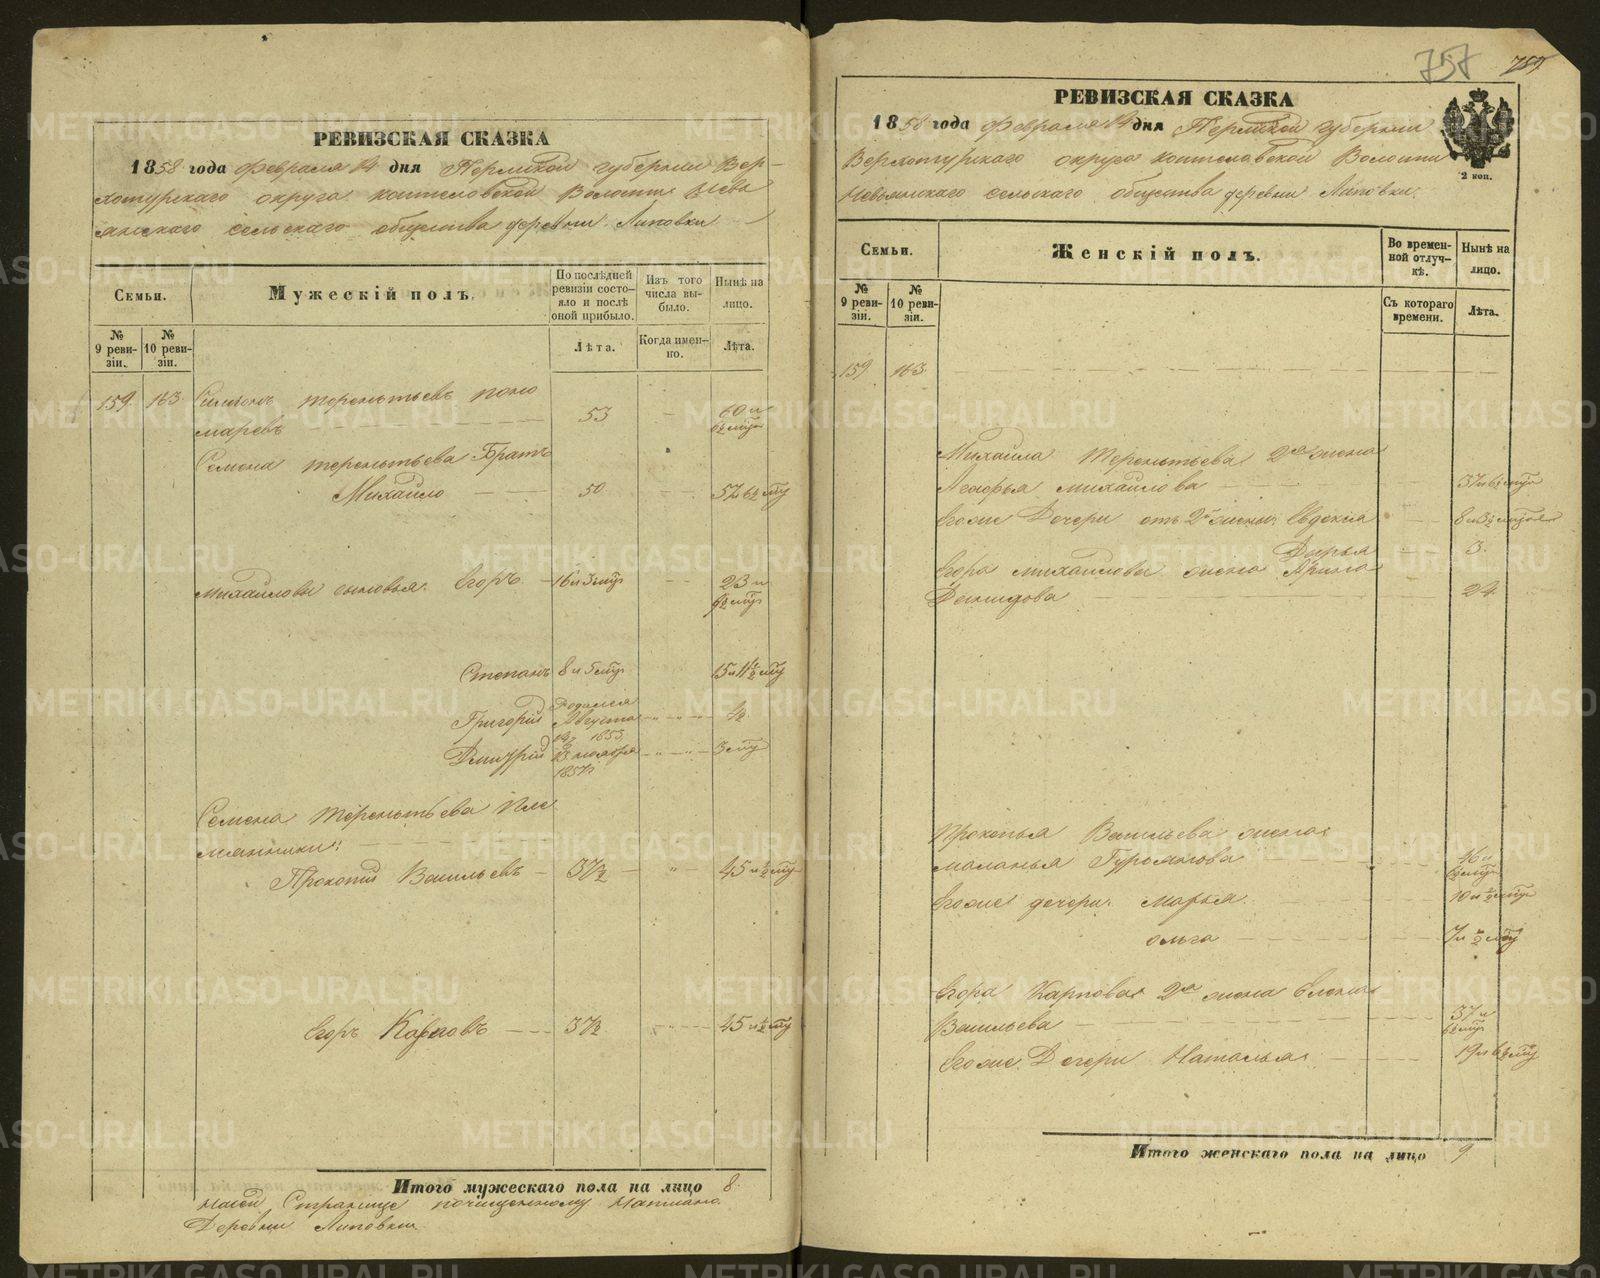 РЕВИЗСКАЯ СКАЗКА
1858 года февраля 14 дня Пермской губернии Вер-
хотурскаго округа коптеловской Волости Невь
янскаго сельскаго общества деревни Липовки
Семьи.
Мужескій полъ.
По послѣдней ревизіи состояло и послѣ оной прибыло.
Изъ того числа выбыло.
Нынѣ на лицо.
№ 9 ревизіи.
№ 10 ревизіи.
Лѣта.
Когда именно.
Лѣта.
159. 163. Терентьевъ поно
маревъ 53 60 и
Семена терентьева Братъ
Михайло 50 57
Михайловы сыновья. Егоръ 16 и 23 и
Степанъ 8 и 15 и
Григорій родился Августа 1853
Дмитрій ноября 1857
Семена терентьева пле
мянники:
Прокопій Васильевъ 37½ 45 и
Егоръ Карповъ 37½ 45 и
Итого мужескаго пола на лицо 8.
Странице почищенному
Деревни Липовки
757
РЕВИЗСКАЯ СКАЗКА
1858 года февраля 14 дня Пермской губернии
Верхотурскаго округа коптеловской Волости
Невьянскаго сельскаго общества деревни Липовки.
2 коп.
Семьи.
Женскій полъ.
Во временной отлучкѣ.
Нынѣ на лицо.
№ 9 ревизіи.
№ 10 ревизіи.
Съ котораго времени.
Лѣта.
159 163
Михаила Терентьева 2я жена
михайлова 37
Егоже Дочери отъ 2й жены Евдокия 8 и
Дарья 3.
Егора михайлова жена Арина
24
Прокопья Васильева жена
маланья 46 и
Егоже дочери. Марья 10 и
ольга 7 и
Егора Карпова 2я жена елена
Васильева 37 и
Егоже Дочери Наталья 19 и
Итого женскаго пола на лицо 9.
METRIKI.GASO-URAL.RU